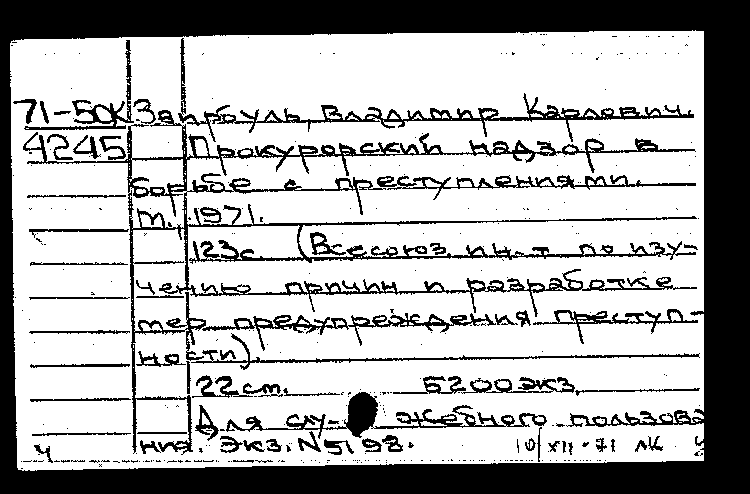 71-50К Заирбуль, Владимир Карлович.
4245 Прокурорский надзор в
борьбе с преступлениями.
М., 1971.
123с. (Всесоюз. ин-т по изу-
чению причин и разработке
мер предупреждения преступ-
ности).
22см. 5200экз.
Для слу- жебного пользова
ния. Экз. N5198.
Ч 10/XII-71 ЛК